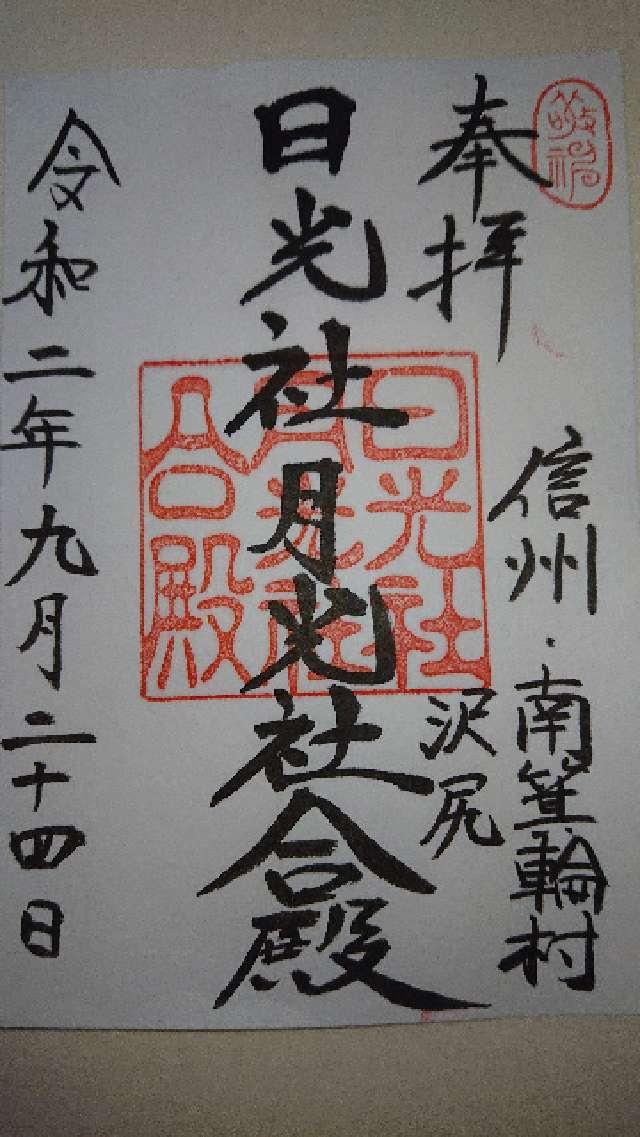 敬神
奉拝
信州・南箕輪村
沢尻
日光社月光社合殿
日光社
月光社
合殿
令和二年九月二十四日